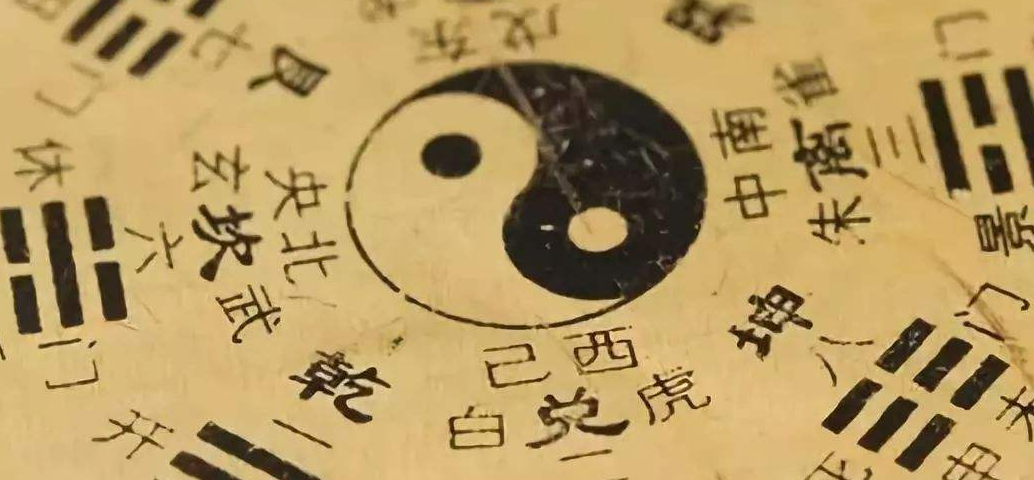 七
艮
门
休
戊
东
门
南
中
雀
离
朱
三
景
玄
坎
武
央
北
六
门
开
乾
一
己 西
白 兑 虎
坤
八
门
申